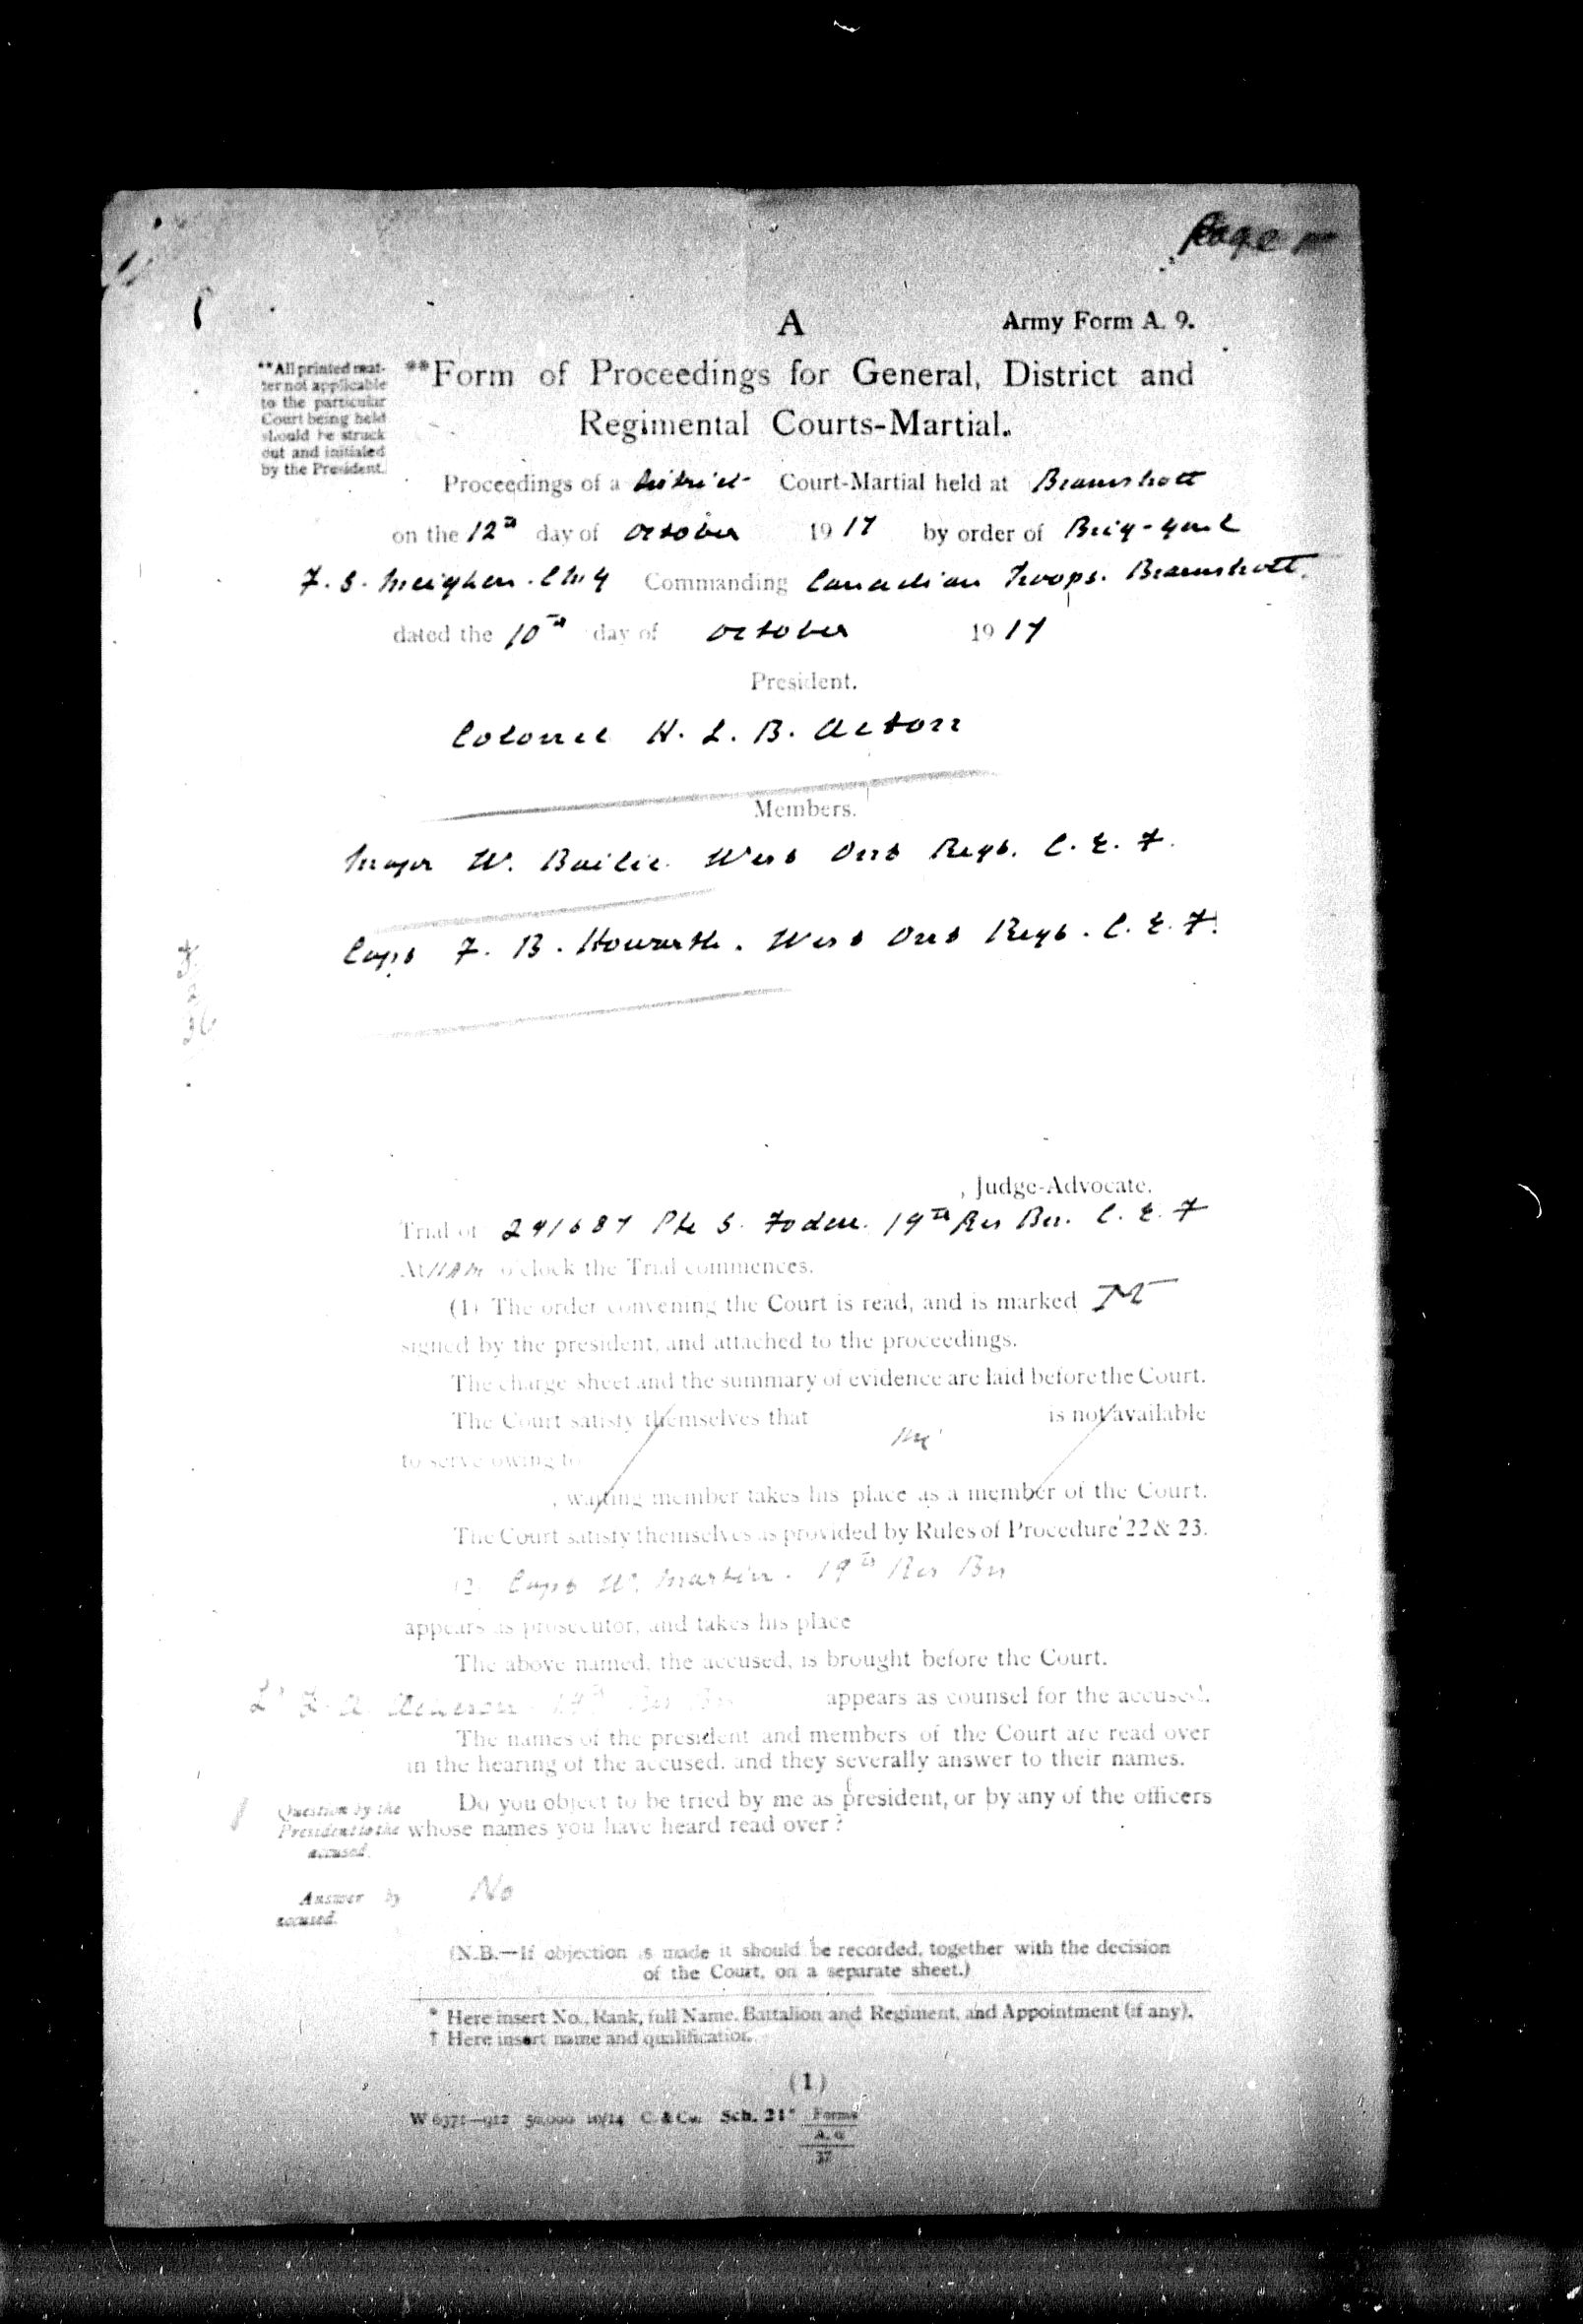 Page
A
Army Form A. 9.
**All printed mat-
ter not applicable
to the particular
Court being held
should be struck
out and initialed
by the President.
**Form of Proceedings for General, District and
Regimental Courts-Martial.
Proceedings of a District Court-Martial held at Bramshott
on the 12th day of October 1917 by order of Brig-Genl
F. S. Meighen. CMG Commanding Canadian Troops. Bramshott.
dated the 10th day of October 1917
President.
Colonel H. L. B. Acton
Members.
Major W. Bailie West Ont Regt. C. E. F.
Capt F. B. Howarth. West Ont Regt. C. E. F.
, Judge-Advocate.
Trial of 241687 Pte S. Foden. 19th Res Bn. C. E. F
At 11 AM o'clock the Trial commences.
(1) The order convening the Court is read, and is marked
signed by the president, and attached to the proceedings.
The charge-sheet and the summary of evidence are laid before the Court.
The Court satisfy themselves that is not available
to serve owing to
, waiting member takes his place as a member of the Court.
The Court satisfy themselves as provided by Rules of Procedure 22 & 23.
(2) Capt W. Martin. 19th Res Bn
appears as prosecutor, and takes his place
The above named, the accused, is brought before the Court.
Lt F. A. 19th Res Bn appears as counsel for the accused.
The names of the president and members of the Court are read over
in the hearing of the accused, and they severally answer to their names.
Question by the
President to the
accused.
Do you object to be tried by me as president, or by any of the officers
whose names you have heard read over?
Answer by
accused.
No
(N.B.—If objection is made it should be recorded, together with the decision
of the Court, on a separate sheet.)
* Here insert No., Rank, full Name, Battalion and Regiment, and Appointment (if any).
† Here insert name and qualification.
(1)
W 6371—912 50,000 10/14 C. & Co. Sch. 21* Forms
A. 9
37